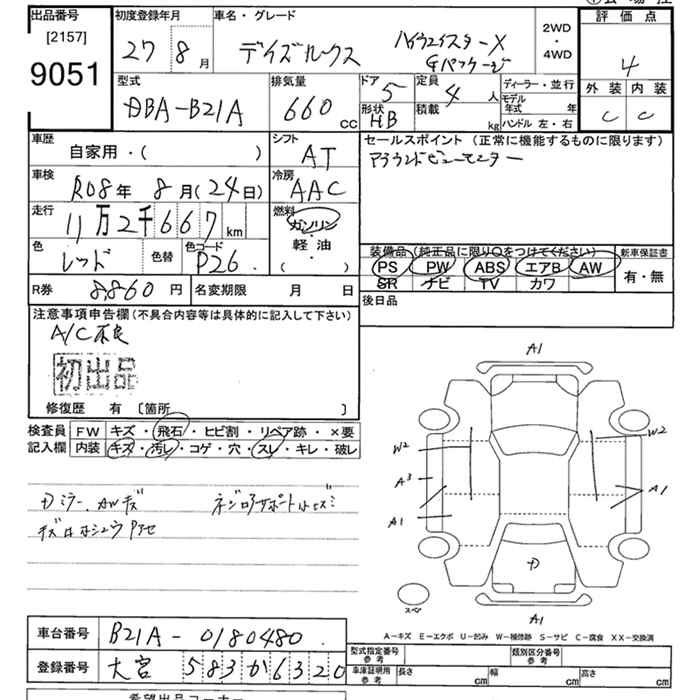 出品番号 初度登録年月 車名・グレード 2WD・4WD 評価点
[2157]
9051 27 8月 デイズルークス ハイウェイスターX Gパッケージ 4
型式 排気量 ドア 定員 ディーラー・並行 外装 内装
DBA-B21A 660cc 5 4人 モデル年式 年 C C
形状 HB 積載 kg ハンドル 左・右
車歴 シフト セールスポイント (正常に機能するものに限ります)
自家用・( ) AT アラウンドビューモニター
車検 冷房
R08年 8月(24日) AAC
走行 燃料
11万2千667km ガソリン・軽油・( )
色 色替 色コード 装備品 (純正品に限り○をつけてください) 新車保証書
レッド P26 PS PW ABS エアB AW 有・無
SR ナビ TV カワ
R券 8,860円 名変期限 月 日 後日品
注意事項申告欄 (不具合内容等は具体的に記入して下さい)
A/C不良
初出品
修復歴 有 [箇所 ]
検査員記入欄 FW キズ・飛石・ヒビ割・リペア跡・×要
内装 キズ・汚レ・コゲ・穴・スレ・キレ・破レ
Dミラー、AWキズ
A1
W2 W2
A3
A1 A1
スペア
A1
A-キズ E-エクボ U-凹み W-補修跡 S-サビ C-腐食 XX-交換済
車台番号 B21A-0180480
型式指定番号 参考 類別区分番号 参考
登録番号 大宮 583 か 6320
車庫証明用 参考 長さ cm 幅 cm 高さ cm
希望出品コーナー